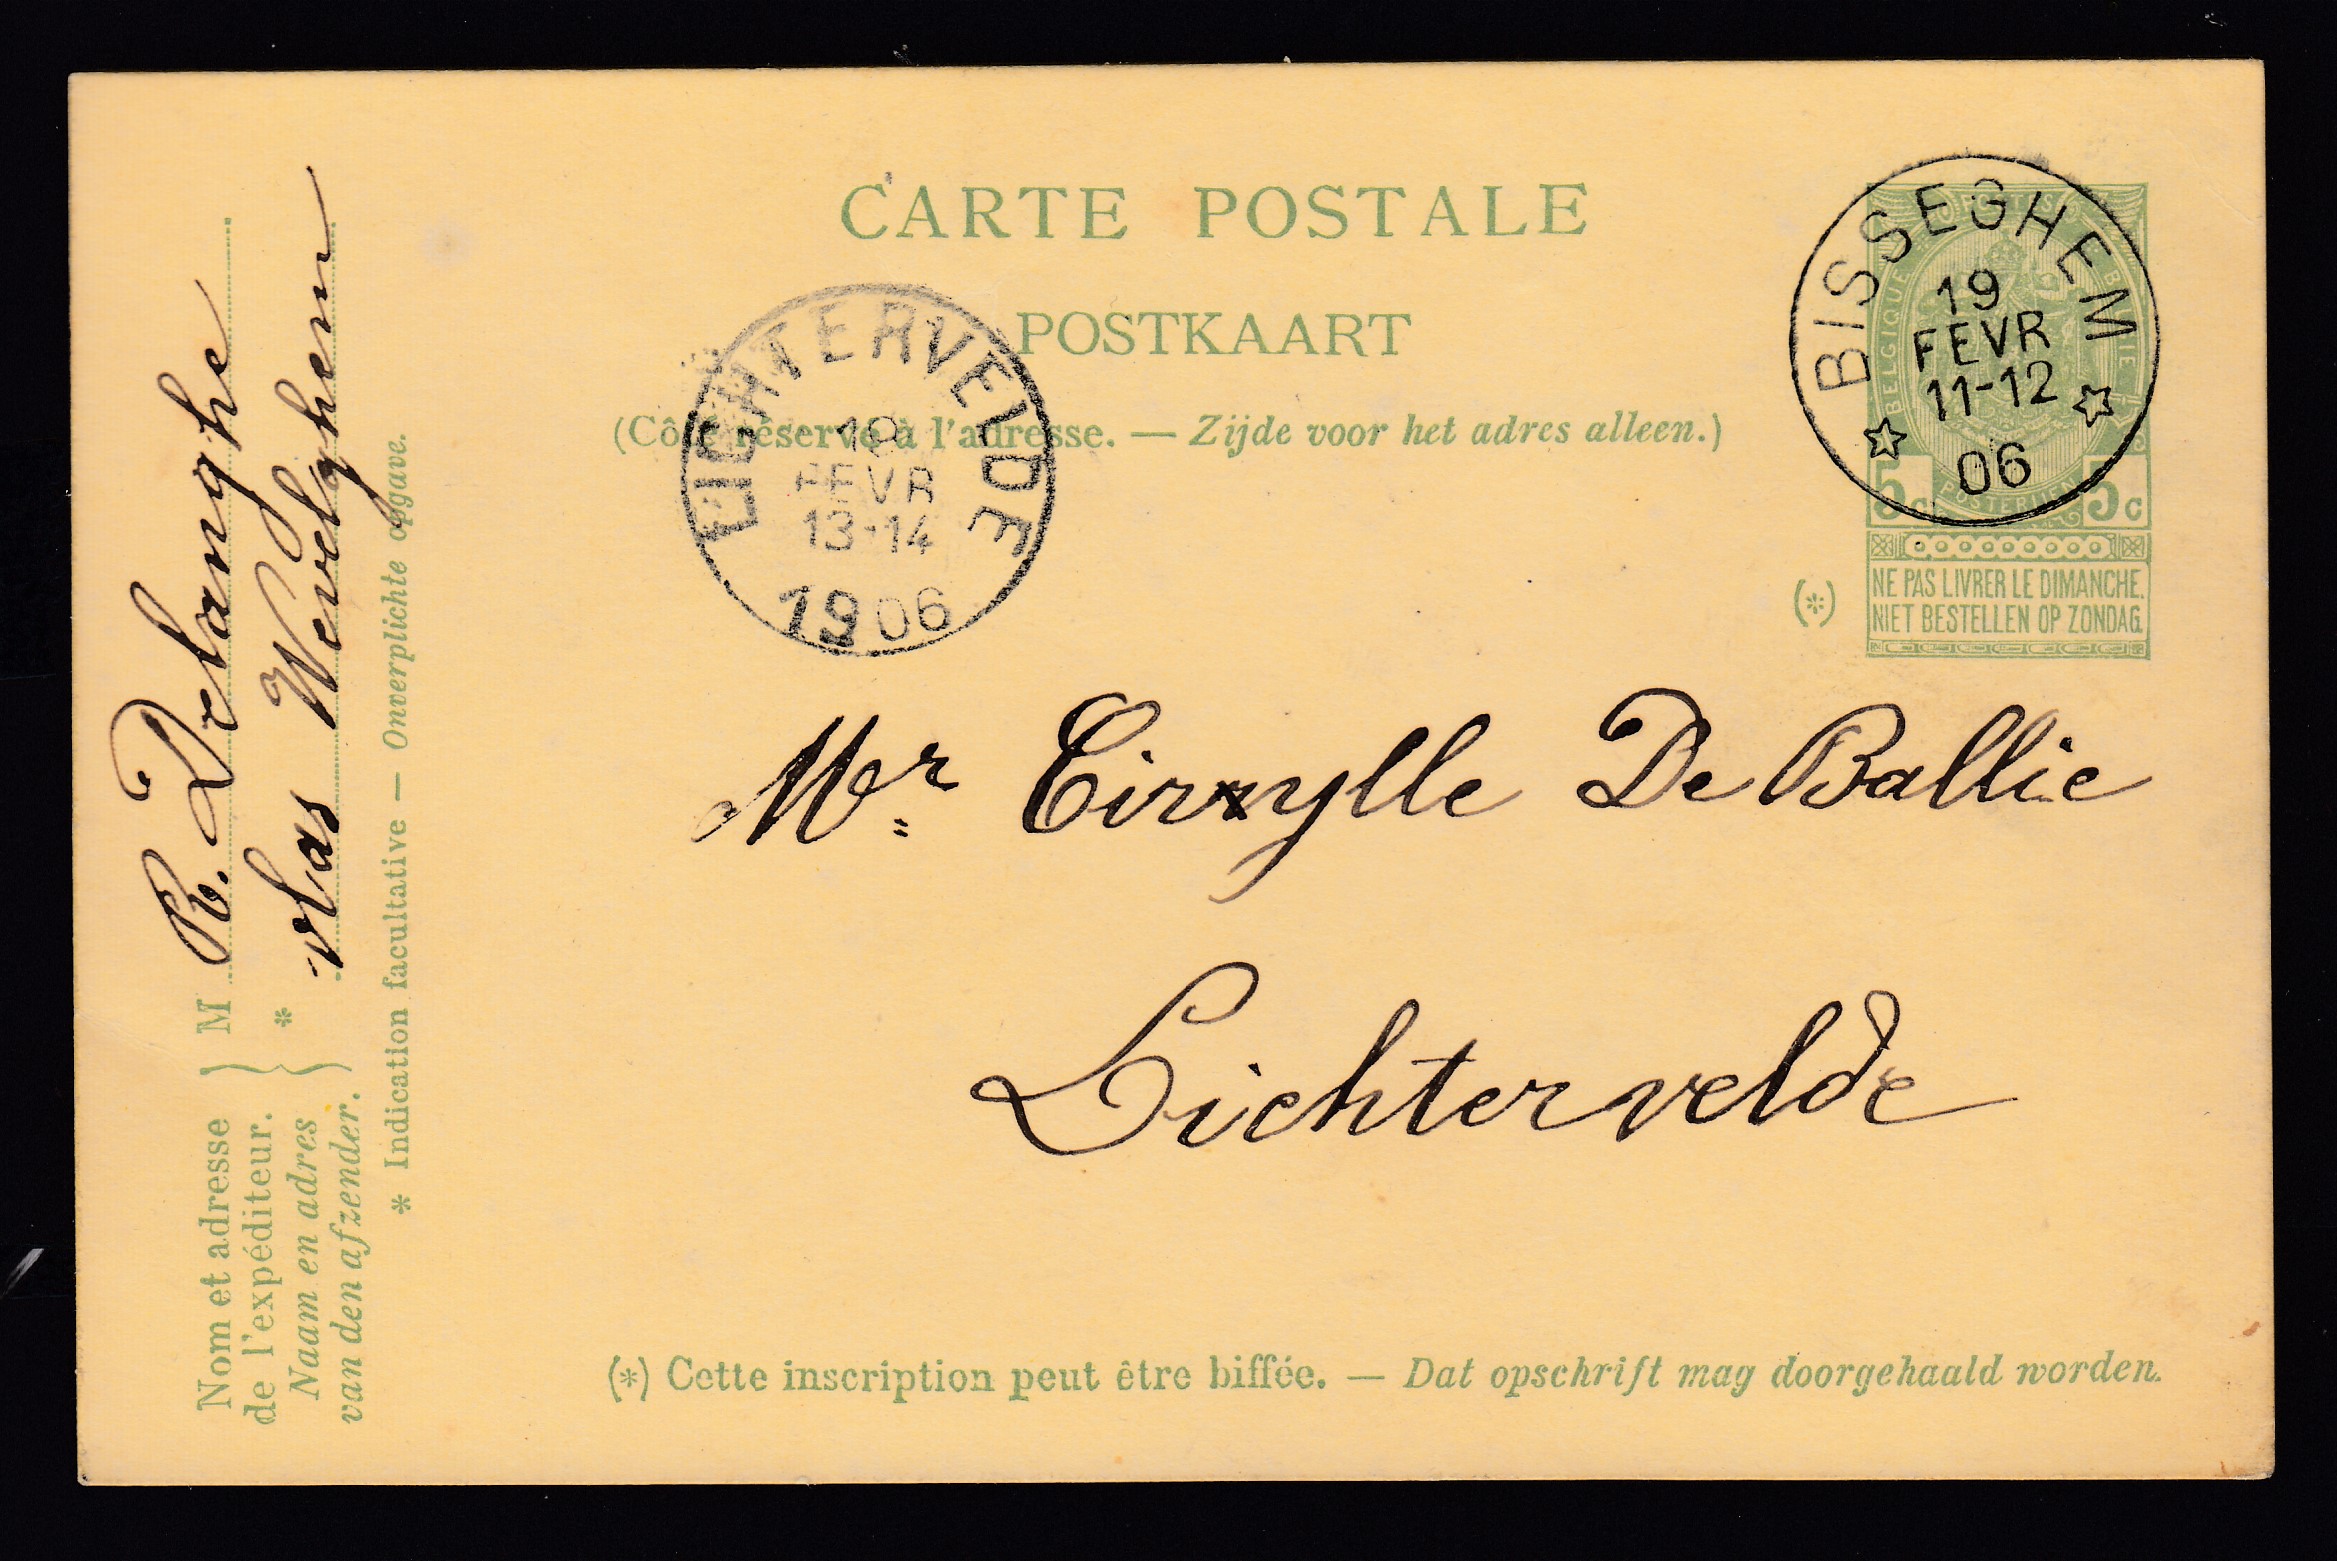 CARTE POSTALE
POSTKAART
(Côté réservé à l'adresse. — Zijde voor het adres alleen.)
LICHTERVELDE
19
FEVR
13-14
1906
BISSEGHEM
19
FEVR
11-12
06
BELGIQUE
5c 5c
(*)
NE PAS LIVRER LE DIMANCHE.
NIET BESTELLEN OP ZONDAG.
Mr Cirylle De Ballie
Lichtervelde
(*) Cette inscription peut être biffée. — Dat opschrift mag doorgehaald worden.
Nom et adresse
de l'expéditeur.
Naam en adres
van den afzender.
M R. Delanghe
* vlas Wevelghem
* Indication facultative — Onverplichte opgave.